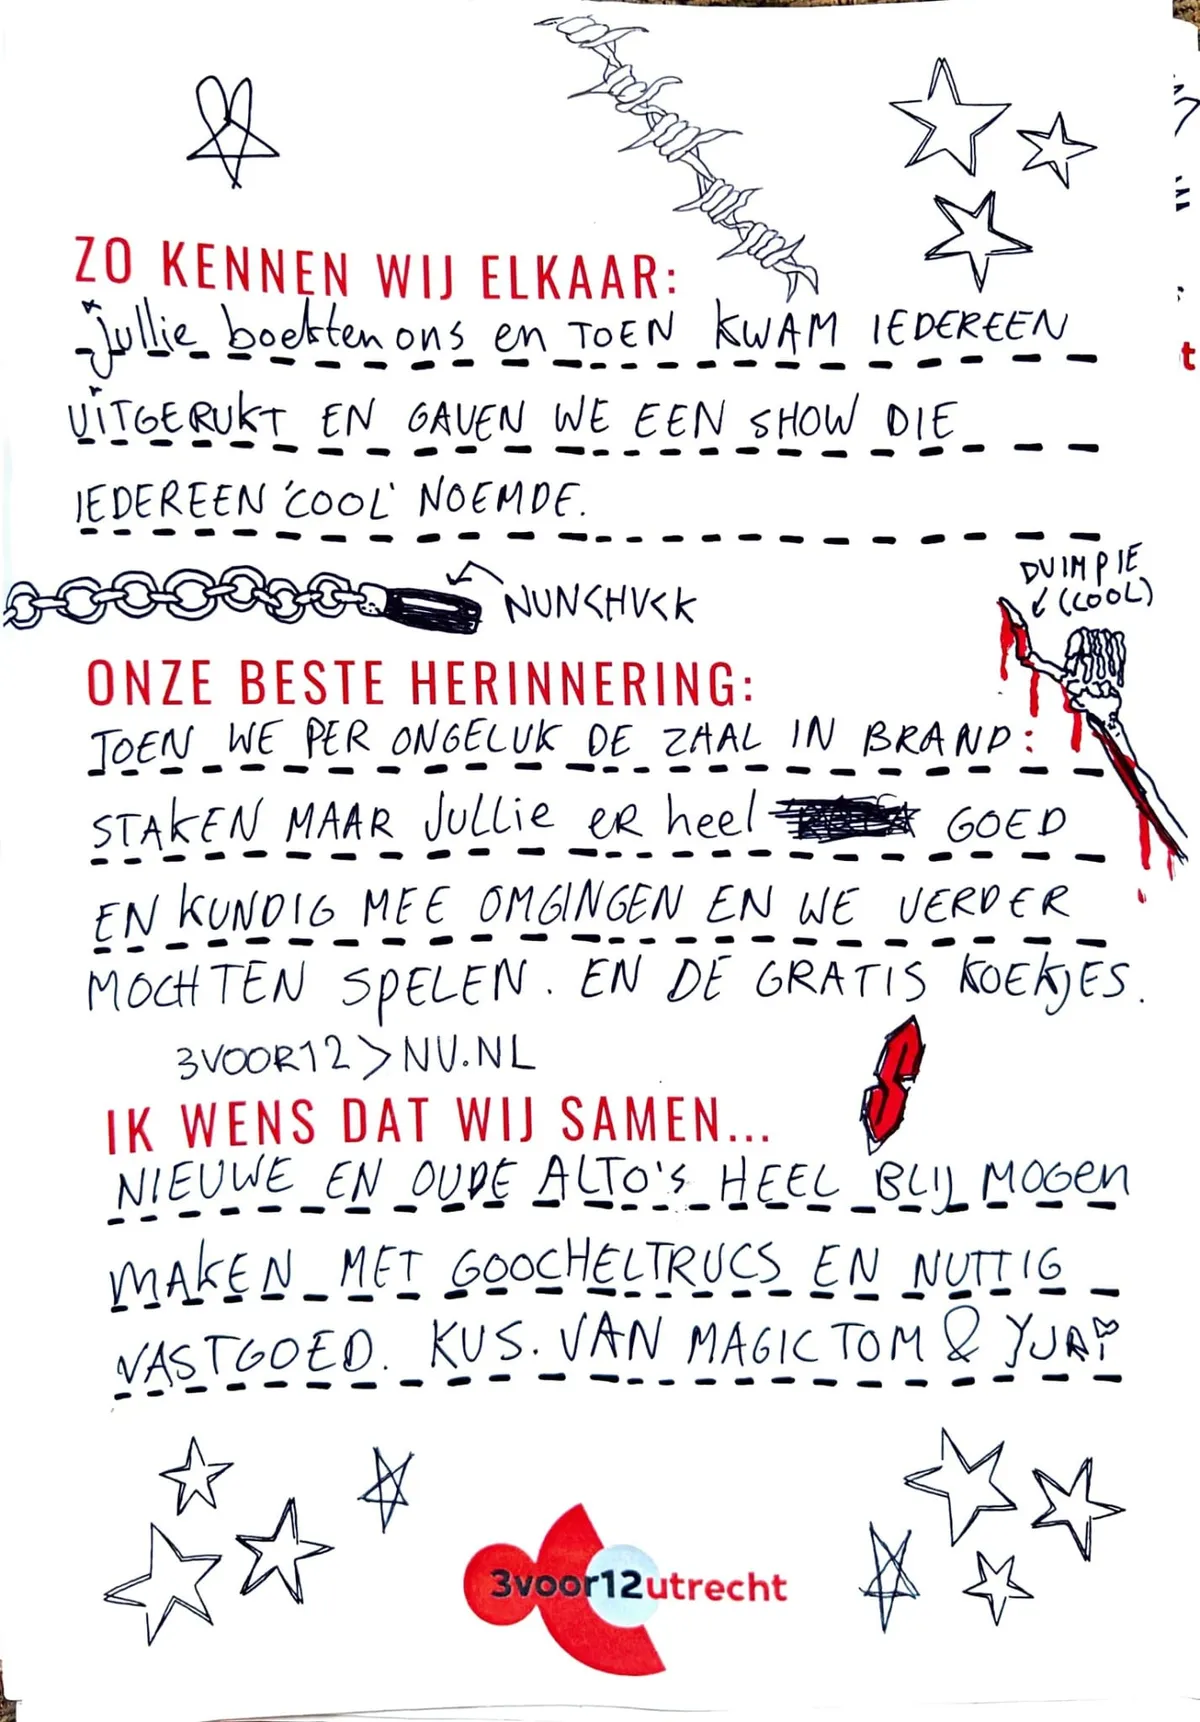 ZO KENNEN WIJ ELKAAR:
jullie boekten ons en TOEN KWAM IEDEREEN
UITGERUKT EN GAVEN WE EEN SHOW DIE
IEDEREEN 'COOL' NOEMDE.
DUIMPIE
(COOL)
NUNCHUCK
ONZE BESTE HERINNERING:
TOEN WE PER ONGELUK DE ZAAL IN BRAND
STAKEN MAAR JULLIE ER heel GOED
EN KUNDIG MEE OMGINGEN EN WE VERDER
MOCHTEN SPELEN. EN DE GRATIS KOEKJES.
3VOOR12 > NU.NL
IK WENS DAT WIJ SAMEN...
NIEUWE EN OUDE ALTO'S HEEL BLIJ MOGEN
MAKEN MET GOOCHELTRUCS EN NUTTIG
VASTGOED. KUS. VAN MAGIC TOM & YURI
3voor12utrecht